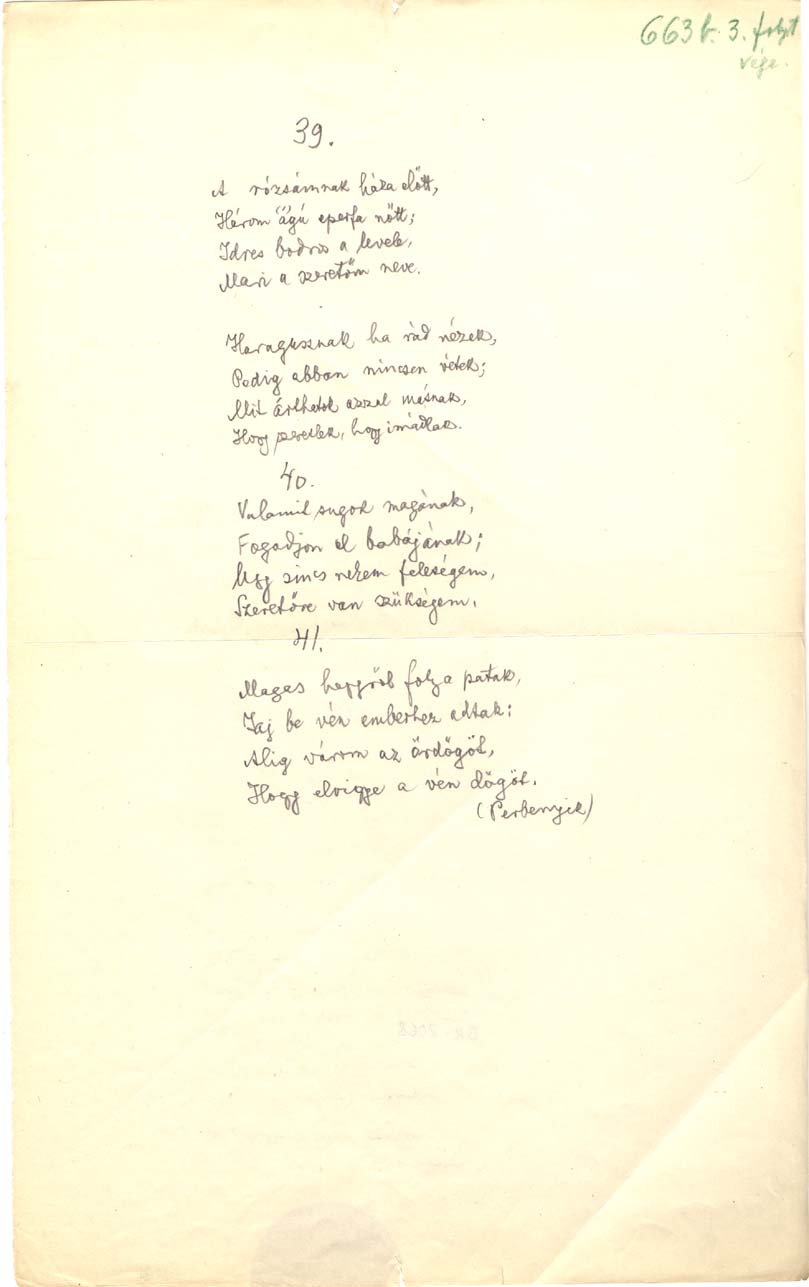 663 b. 3. folyt
vége.
39.
A rózsámnak háza előtt,
Három ágú eperfa nőtt;
Idres bodros a levele,
Mari a szeretőm neve.
Haragusznak ha rád nézek,
Pedig abban nincsen vétek;
Mit árthatok azzal másnak,
Hogy szeretlek, hogy imádlak.
40.
Valamit sugok magának,
Fogadjon el babájának;
Ugy sincs nekem feleségem,
Szeretőre van szükségem.
41.
Magas hegyről folya patak,
Jaj be vén emberhez adtak;
Alig várom az ördögöt,
Hogy elvigye a vén dögöt.
(Perbenyik)